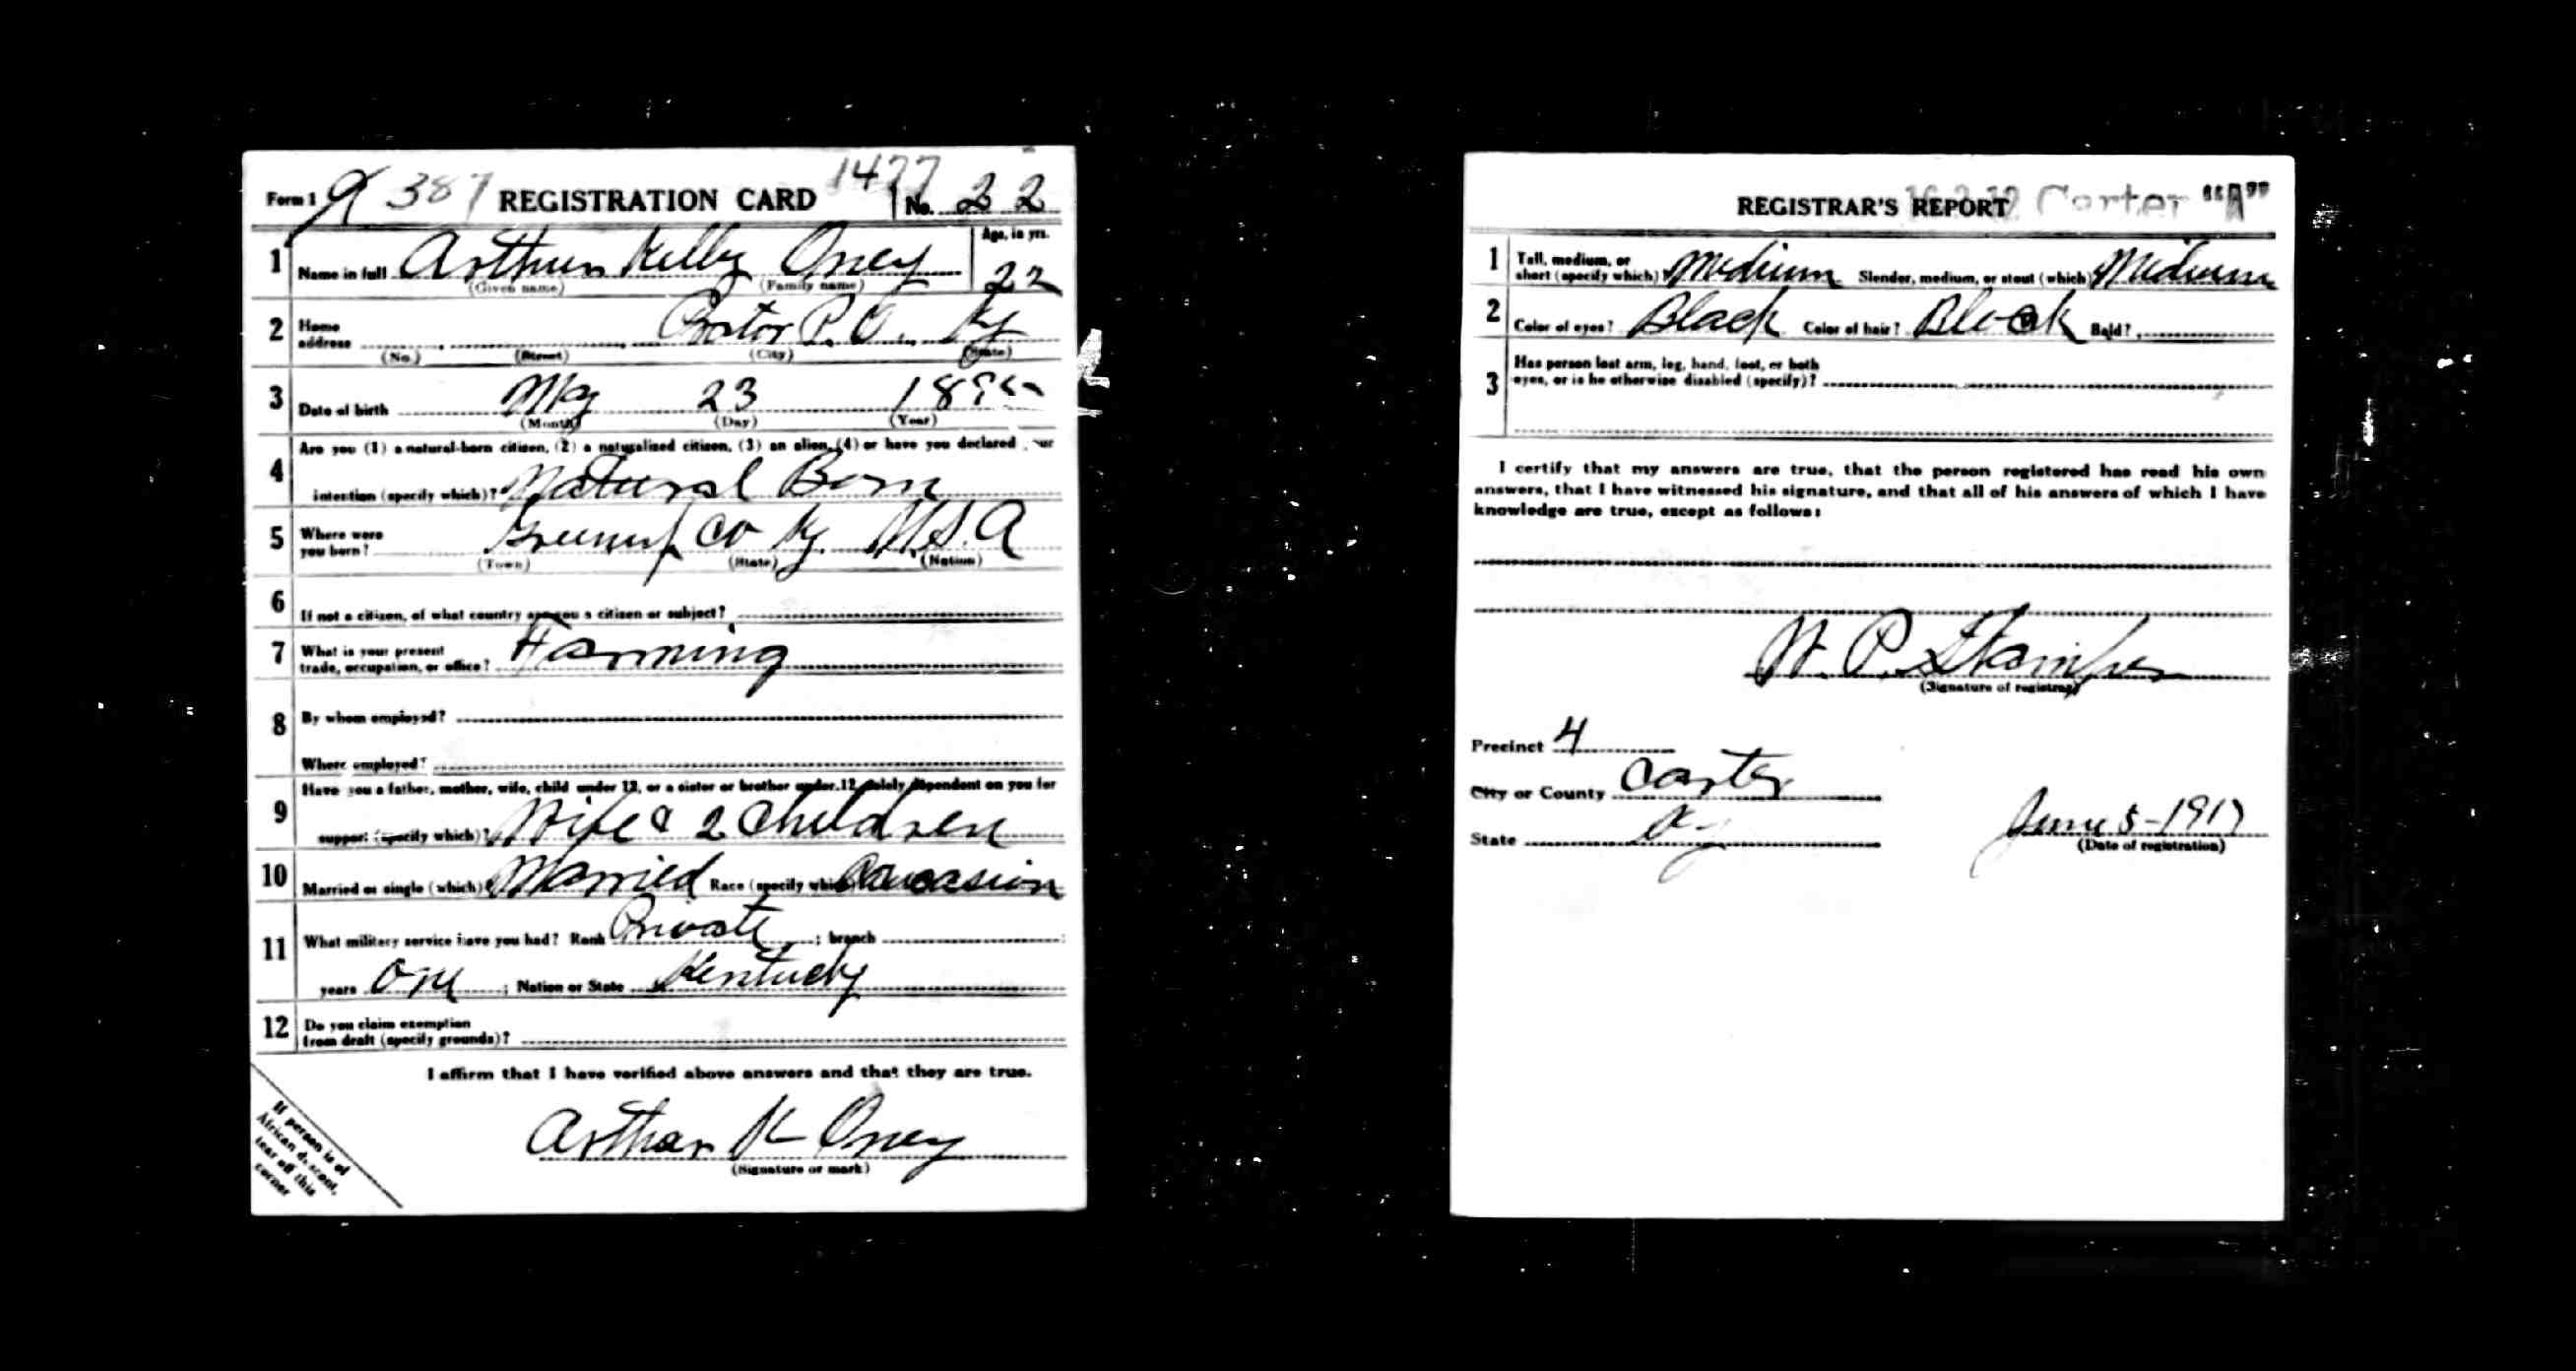 Form 1 387 REGISTRATION CARD 1477 No. 22
1 Name in full Arthur Kelly Oney Age, in yrs. 22
(Given name) (Family name)
2 Home address P.O. Ky
(No.) (Street) (City) (State)
3 Date of birth May 23 1895
(Month) (Day) (Year)
4 Are you (1) a natural-born citizen, (2) a naturalized citizen, (3) an alien, (4) or have you declared your
intention (specify which)? Natural Born
5 Where were you born? Greenup Co Ky. U.S.A
(Town) (State) (Nation)
6 If not a citizen, of what country are you a citizen or subject?
7 What is your present trade, occupation, or office? Farming
8 By whom employed?
Where employed?
9 Have you a father, mother, wife, child under 12, or a sister or brother under 12, solely dependent on you for
support (specify which)? Wife & 2 children
10 Married or single (which)? Married Race (specify which)? Caucasion
11 What military service have you had? Rank Private ; branch
years one ; Nation or State Kentucky
12 Do you claim exemption from draft (specify grounds)?
I affirm that I have verified above answers and that they are true.
Arthur K Oney
(Signature or mark)
If person is of
African descent,
tear off this
corner
REGISTRAR'S REPORT Carter "A"
1 Tall, medium, or short (specify which)? Medium Slender, medium, or stout (which)? Medium
2 Color of eyes? Black Color of hair? Black Bald?
3 Has person lost arm, leg, hand, foot, or both eyes, or is he otherwise disabled (specify)?
I certify that my answers are true, that the person registered has read his own
answers, that I have witnessed his signature, and that all of his answers of which I have
knowledge are true, except as follows:
W. P. Stamper
(Signature of registrar)
Precinct 4
City or County Carter
State Ky
June 5-1917
(Date of registration)